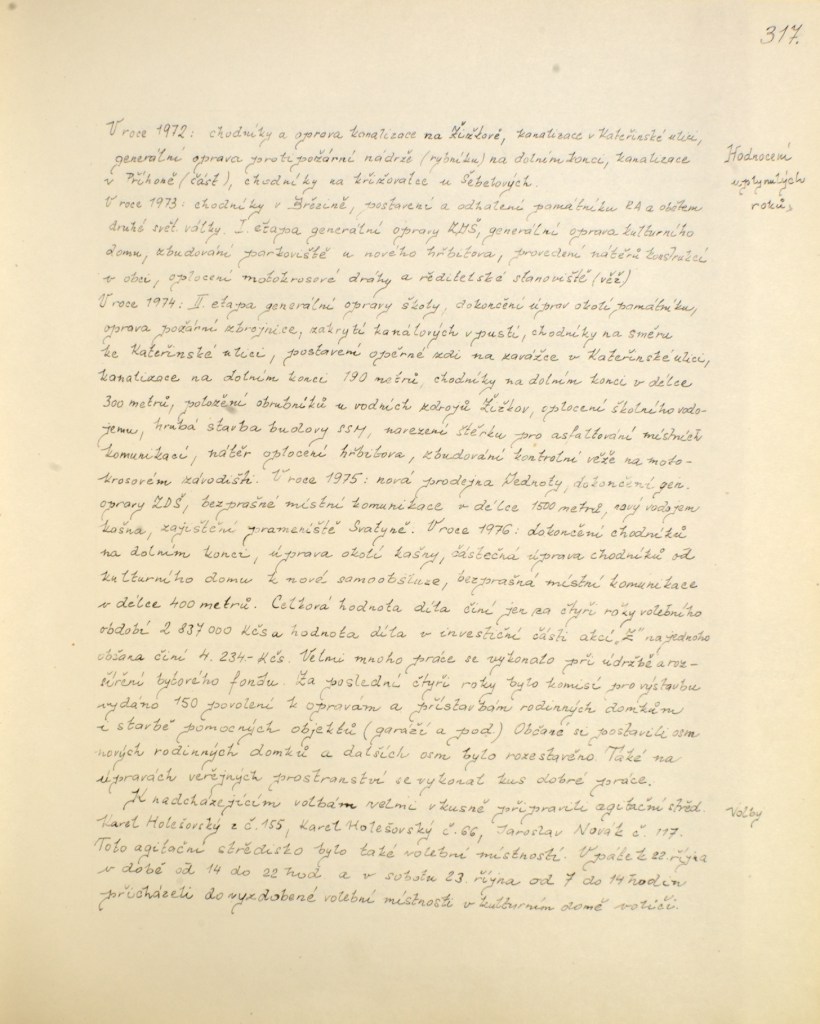 317.
V roce 1972: chodníky a oprava kanalizace na Žižkově, kanalizace v Kateřinské ulici,
generální oprava protipožární nádrže (rybníku) na dolním konci, kanalizace
v Příhoně (část), chodníky na křižovatce u Šebelových.
Hodnocení
uplynulých
roků.
V roce 1973: chodníky v Březině, postavení a odhalení památníku RA a obětem
druhé svět. války. I. etapa generální opravy ZDŠ, generální oprava kulturního
domu, zbudování parkoviště u nového hřbitova, provedení nátěrů konstrukcí
v obci, oplocení motokrosové dráhy a ředitelské stanoviště (věž)
V roce 1974: II. etapa generální opravy školy, dokončení úprav okolí památníku,
oprava požární zbrojnice, zakrytí kanálových vpustí, chodníky na směru
ke Kateřinské ulici, postavení opěrné zdi na zavážce v Kateřinské ulici,
kanalizace na dolním konci 190 metrů, chodníky na dolním konci v délce
300 metrů, položení obrubníků u vodních zdrojů Žižkov, oplocení školního vodo-
jemu, hrubá stavba budovy SSM, navezení štěrku pro asfaltování místních
komunikací, nátěr oplocení hřbitova, zbudování kontrolní věže na moto-
krosovém závodišti. V roce 1975: nová prodejna Jednoty, dokončení gen.
opravy ZDŠ, bezprašné místní komunikace v délce 1500 metrů, nový vodojem
kašna, zajištění prameniště Svatyně. V roce 1976: dokončení chodníků
na dolním konci, úprava okolí kašny, částečná úprava chodníků od
kulturního domu k nové samoobsluze, bezprašná místní komunikace
v délce 400 metrů. Celková hodnota díla činí jen za čtyři roky volebního
období 2 837 000 Kčs a hodnota díla v investiční části akcí „Z" na jednoho
občana činí 4.234.- Kčs. Velmi mnoho práce se vykonalo při údržbě a roz-
šíření bytového fondu. Za poslední čtyři roky bylo komisí pro výstavbu
vydáno 150 povolení k opravám a přístavbám rodinných domkům
i stavbě pomocných objektů (garáží a pod.) Občané si postavili osm
nových rodinných domků a dalších osm bylo rozestavěno. Také na
úpravách veřejných prostranství se vykonal kus dobré práce.
K nadcházejícím volbám velmi vkusně připravili agitační střed.
Volby
Karel Holešovský z č. 155, Karel Holešovský č. 66, Jaroslav Novák č. 117.
Toto agitační středisko bylo také volební místností. V pátek 22. října
v době od 14 do 22 hod a v sobotu 23. října od 7 do 14 hodin
přicházeli do vyzdobené volební místnosti v kulturním domě voliči.